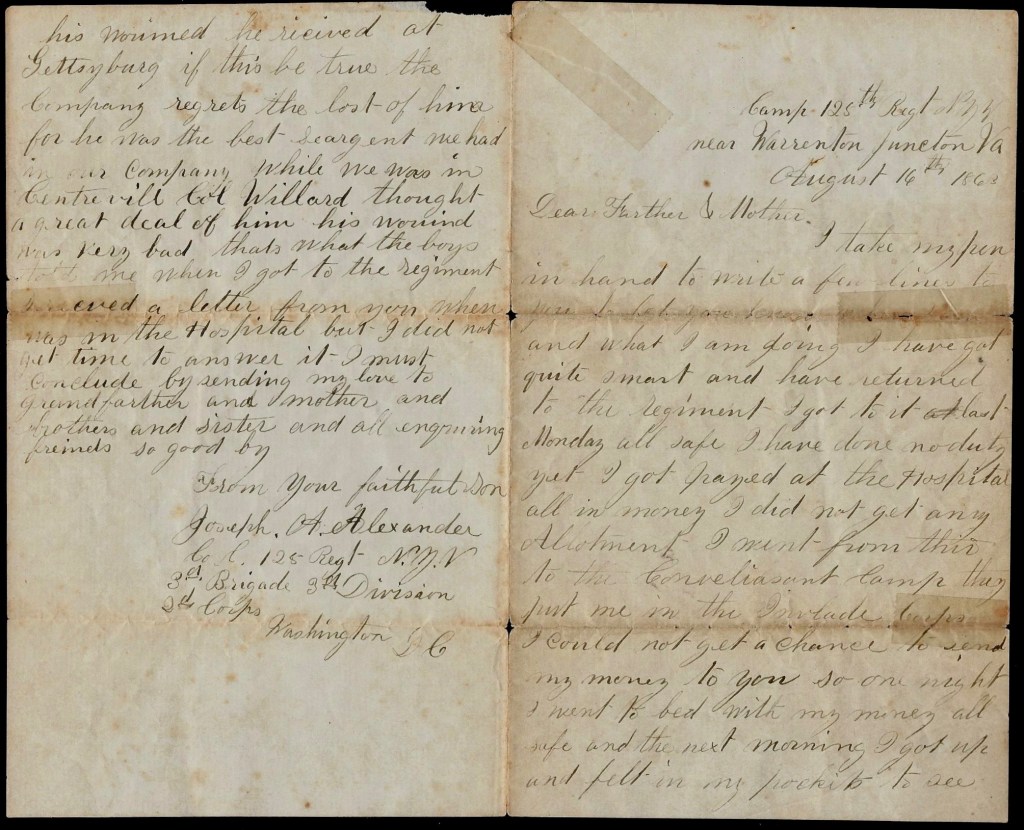 his wound he ricived at
Gettsyburg if this be true the
Company regrets the lost of him
for he was the best seargent we had
in our Company while we was in
Centrevill Col Willard thought
a great deal of him his wound
was very bad thats what the boys
me when I got to the regiment
a letter from you when
was in the Hospital but I did not
get time to answer it I must
conclude by sending my love to
grandfarther and mother and
brothers and sister and all enquiring
freinds so good by
From Your faithful Son
Joseph. A. Alexander
Co C. 125 Regt N.Y.V
3rd Brigade 3rd Division
2nd Corps
Washington D C
Camp 125th Regt N Y V
near Warrenton Juncton Va
August 16th 1863
Dear Farther & Mother.
I take my pen
in hand to write a few lines to
you to let you know
and what I am doing I have got
quite smart and have returned
to the regiment I got to it at last
Monday all safe I have done no duty
yet I got payed at the Hospital
all in money I did not get any
Allotment I went from this
to the Conveliasant Camp they
put me in the Invlade Corps
I could not get a chance to send
my money to you so one night
I went to bed with my money all
safe and the next morning I got up
and felt in my pockets to see